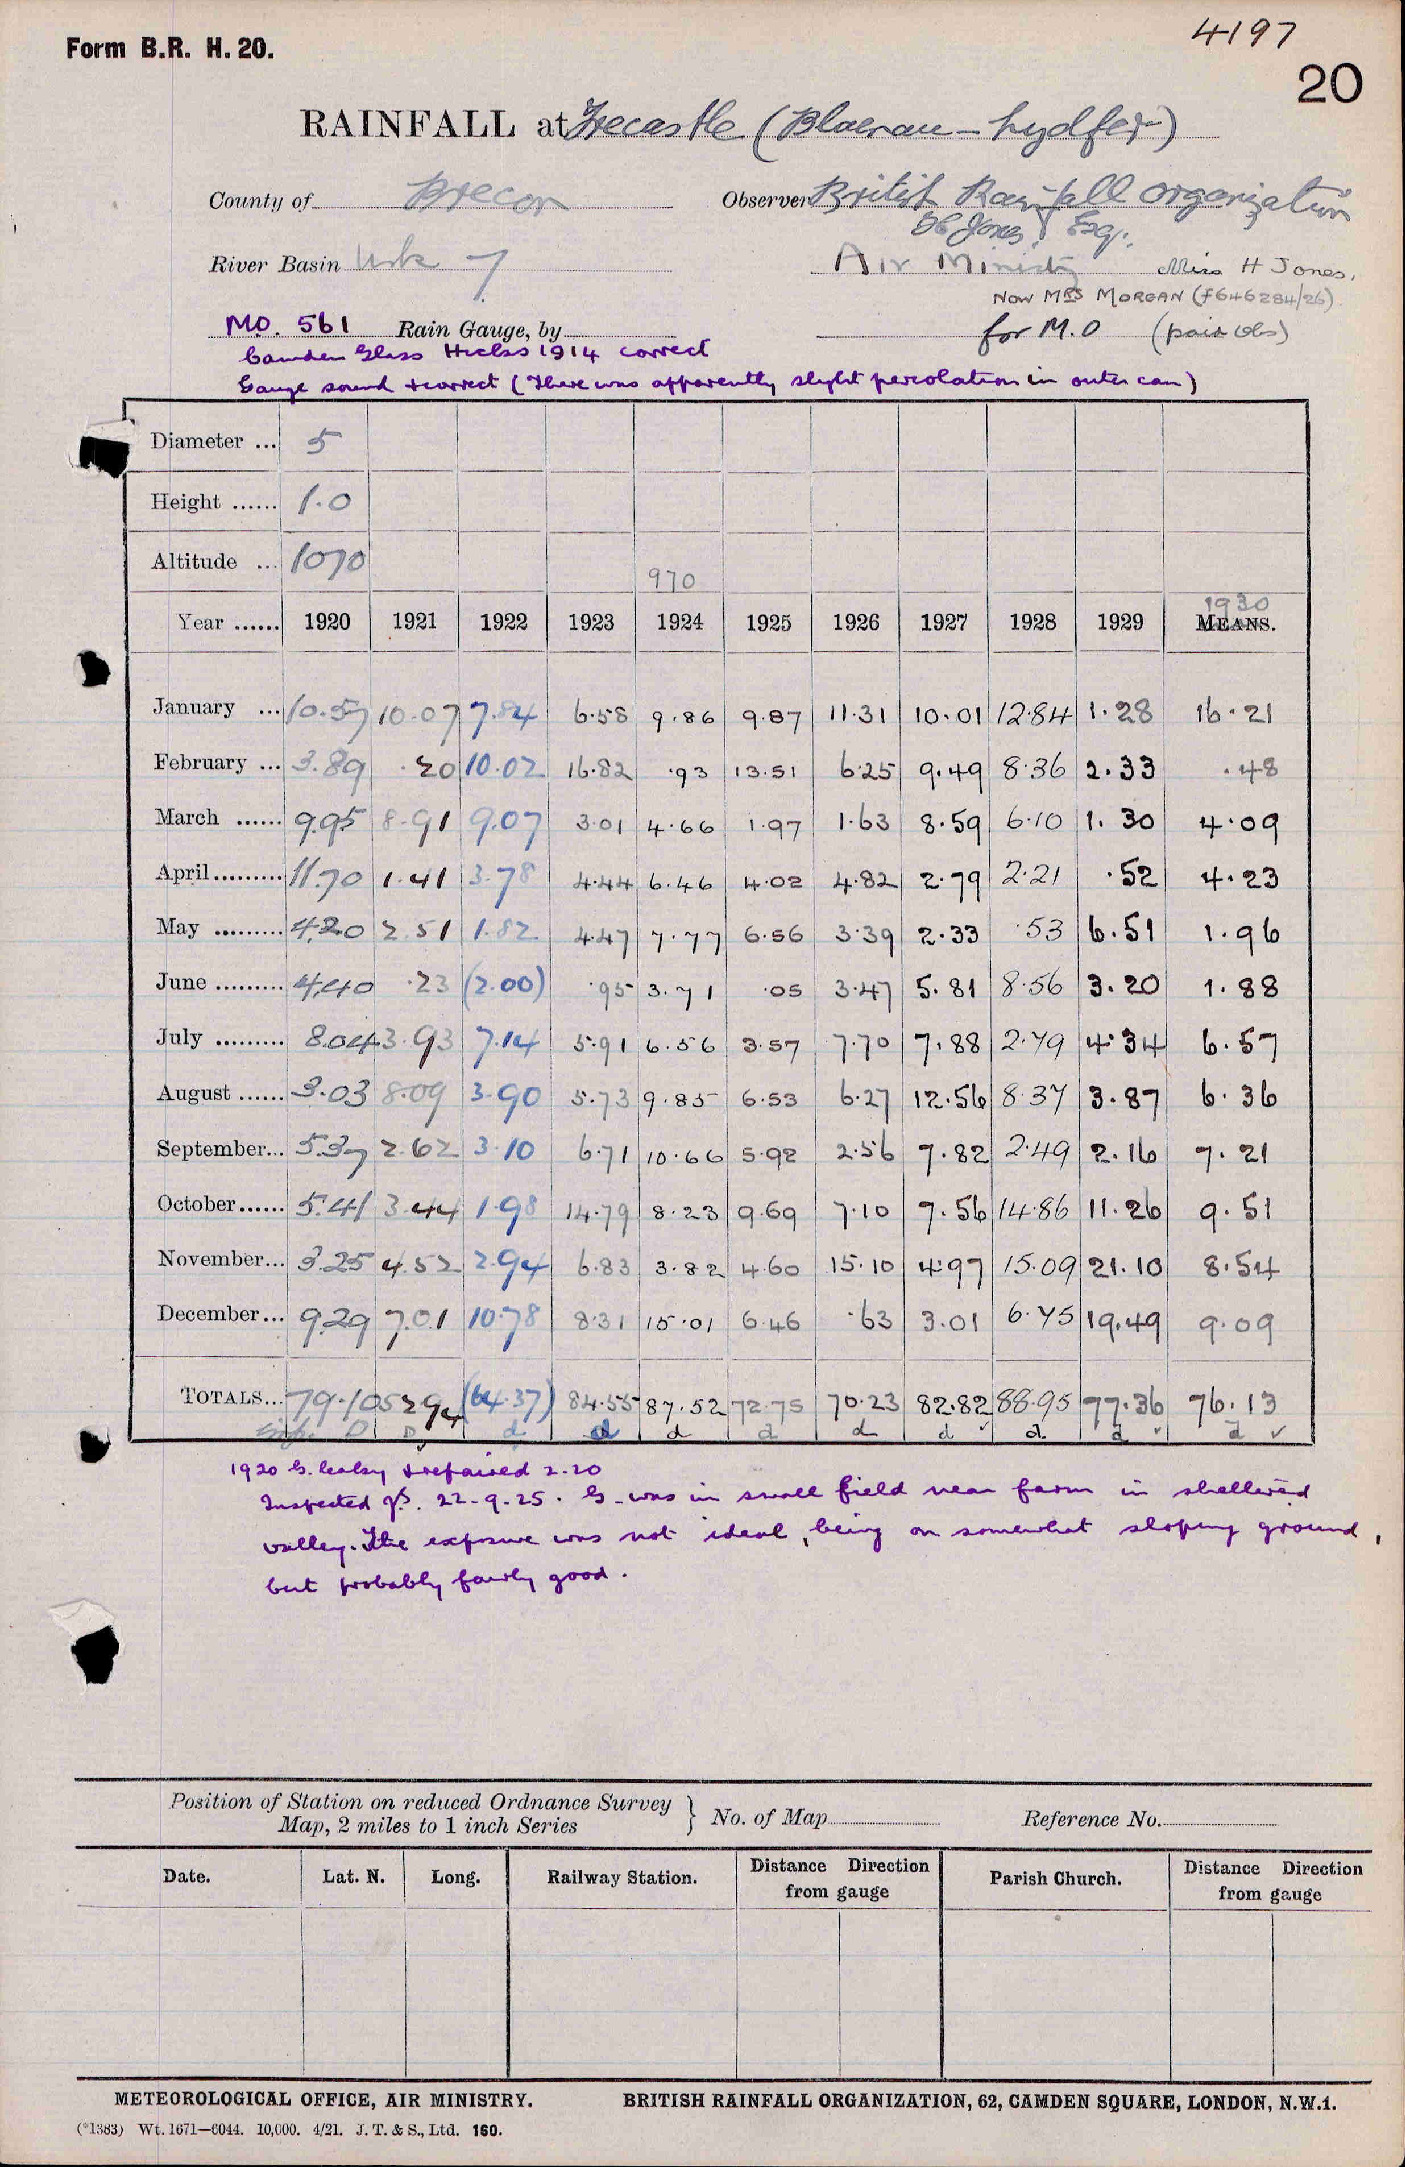 4197
Form B.R. H. 20.
20
RAINFALL at Trecastle (Blaenau-hydfer)
County of Brecon Observer British Rainfall Organization
Jones, Esq.
River Basin Usk 7 Air Ministry Miss H Jones,
NOW MRS MORGAN (f646284/26)
M.O. 561 Rain Gauge, by for M.O (paid obs)
Camden Glass Hicks 1914 correct
Gauge sound & correct (There was apparently slight percolation in outer can)
Diameter ... 5
Height ...... 1.0
Altitude ... 1070 970
Year ...... 1920 1921 1922 1923 1924 1925 1926 1927 1928 1929 MEANS. 1930
January ... 10.57 10.07 7.84 6.58 9.86 9.87 11.31 10.01 12.84 1.28 16.21
February ... 3.89 .20 10.02 16.82 .93 13.51 6.25 9.49 8.36 2.33 .48
March ...... 9.95 8.91 9.07 3.01 4.66 1.97 1.63 8.59 6.10 1.30 4.09
April......... 11.70 1.41 3.78 4.44 6.46 4.02 4.82 2.79 2.21 .52 4.23
May ......... 4.20 2.51 1.82 4.47 7.77 6.56 3.39 2.33 .53 6.51 1.96
June ......... 4.40 .23 (2.00) .95 3.71 .05 3.47 5.81 8.56 3.20 1.88
July ......... 8.04 3.93 7.14 5.91 6.56 3.57 7.70 7.88 2.79 4.34 6.57
August ...... 3.03 8.09 3.90 5.73 9.85 6.53 6.27 12.56 8.37 3.87 6.36
September... 5.37 2.62 3.10 6.71 10.66 5.92 2.56 7.82 2.49 2.16 7.21
October...... 5.41 3.44 1.98 14.79 8.23 9.69 7.10 7.56 14.86 11.26 9.51
November... 3.25 4.52 2.94 6.83 3.82 4.60 15.10 4.97 15.09 21.10 8.54
December... 9.29 7.01 10.78 8.31 15.01 6.46 .63 3.01 6.75 19.49 9.09
TOTALS... 79.10 52.94 (64.37) 84.55 87.52 72.75 70.23 82.82 88.95 77.36 76.13
D D d d d d d d d. d d
1920 G. leaky & repaired 2.20
Inspected 22-9-25. G. was in small field near farm in sheltered
valley. The exposure was not ideal, being on somewhat sloping ground,
but probably fairly good.
Position of Station on reduced Ordnance Survey
Map, 2 miles to 1 inch Series } No. of Map Reference No.
Date. Lat. N. Long. Railway Station. Distance Direction from gauge Parish Church. Distance Direction from gauge
METEOROLOGICAL OFFICE, AIR MINISTRY. BRITISH RAINFALL ORGANIZATION, 62, CAMDEN SQUARE, LONDON, N.W.1.
(*1383) Wt. 1671—6044. 10,000. 4/21. J. T. & S., Ltd. 160.